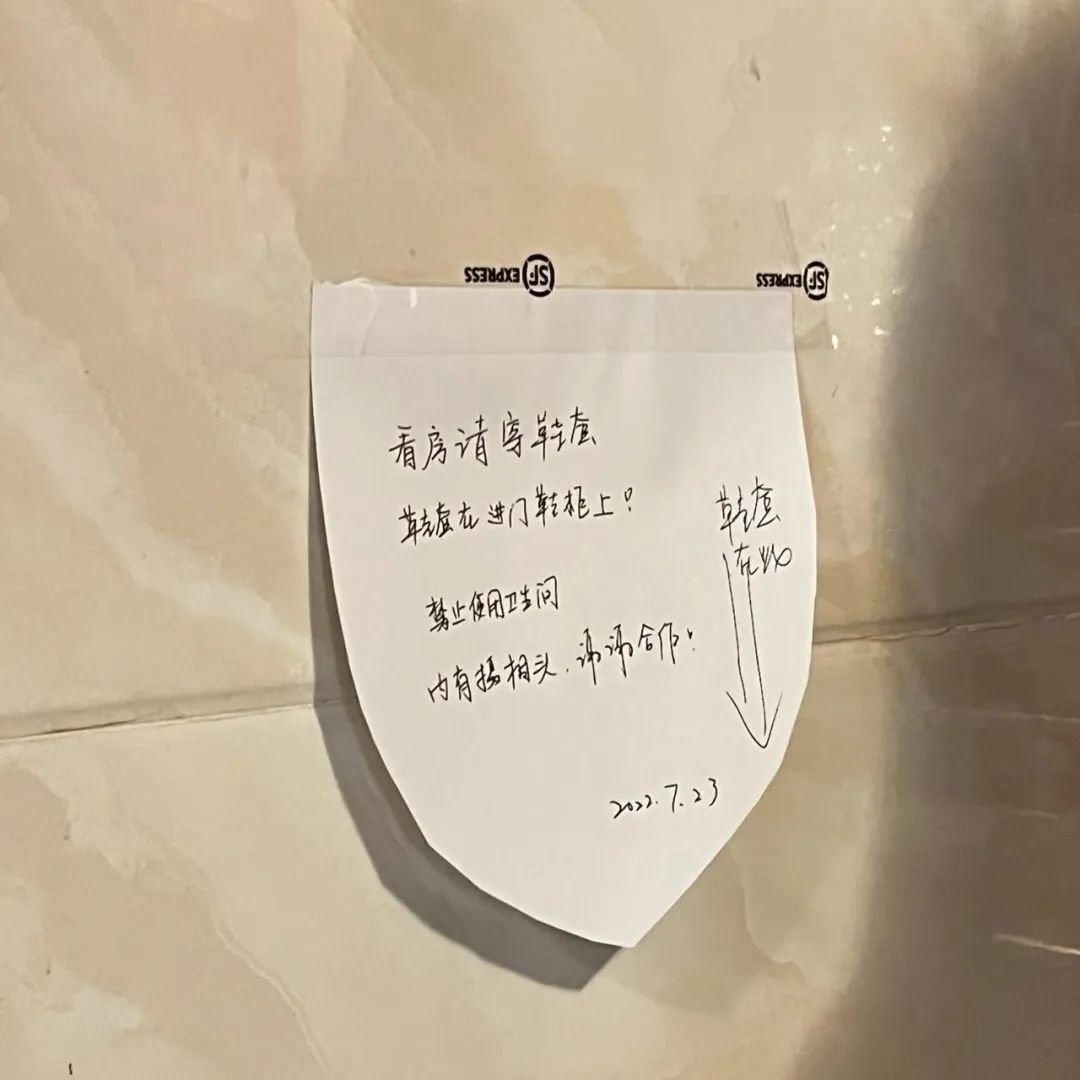 SF EXPRESS
SF EXPRESS
看房请穿鞋套
鞋套在进门鞋柜上!
禁止使用卫生间
内有摄相头.谢谢合作!
鞋套
在此
2022.7.23